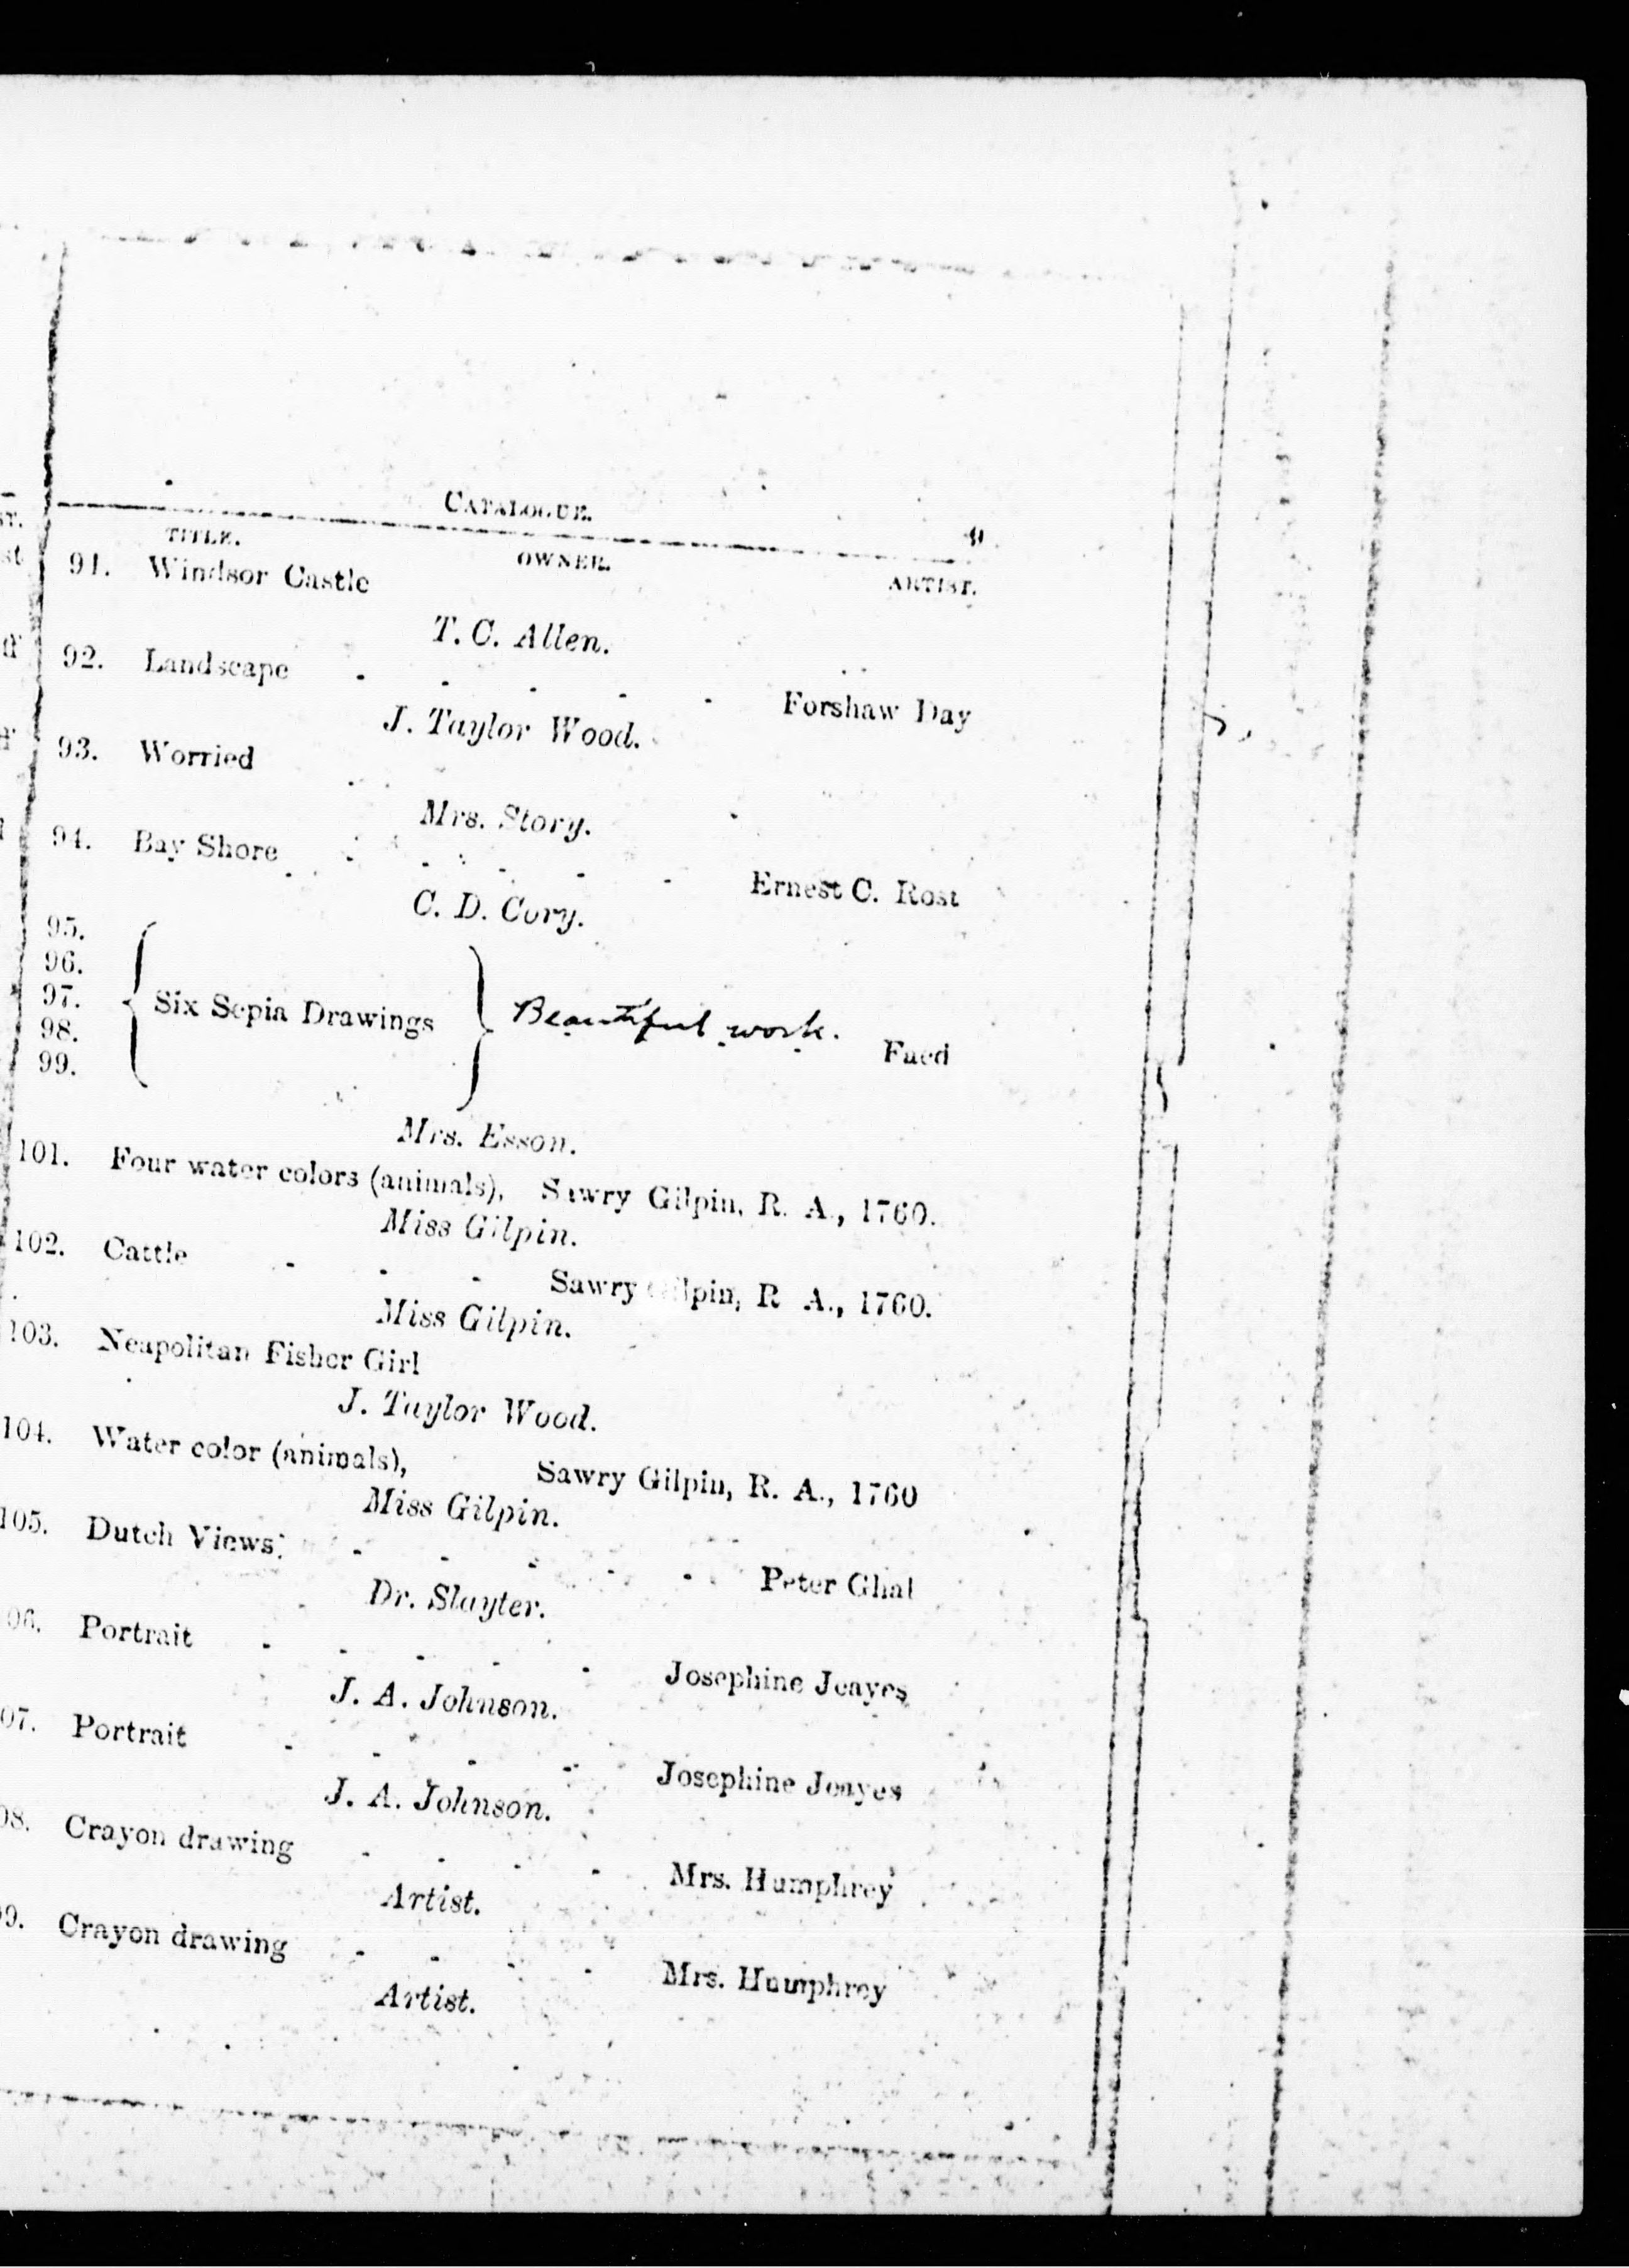 CATALOGUE.
TITLE. OWNER. ARTIST.
91. Windsor Castle
T. C. Allen.
92. Landscape - - - - - Forshaw Day
J. Taylor Wood.
93. Worried
Mrs. Story.
94. Bay Shore - - - - - Ernest C. Rost
C. D. Cory.
95.
96.
97. Six Sepia Drawings Beautiful work. Faed
98.
99.
Mrs. Esson.
101. Four water colors (animals), Sawry Gilpin, R. A., 1760.
Miss Gilpin.
102. Cattle - - - Sawry Gilpin, R A., 1760.
Miss Gilpin.
103. Neapolitan Fisher Girl
J. Taylor Wood.
104. Water color (animals), Sawry Gilpin, R. A., 1760
Miss Gilpin.
105. Dutch Views - - - - - Peter Ghal
Dr. Slayter.
06. Portrait - - - - - Josephine Jeayes
J. A. Johnson.
07. Portrait - - - - Josephine Jeayes
J. A. Johnson.
08. Crayon drawing - - - - Mrs. Humphrey
Artist.
09. Crayon drawing - - - - Mrs. Humphrey
Artist.